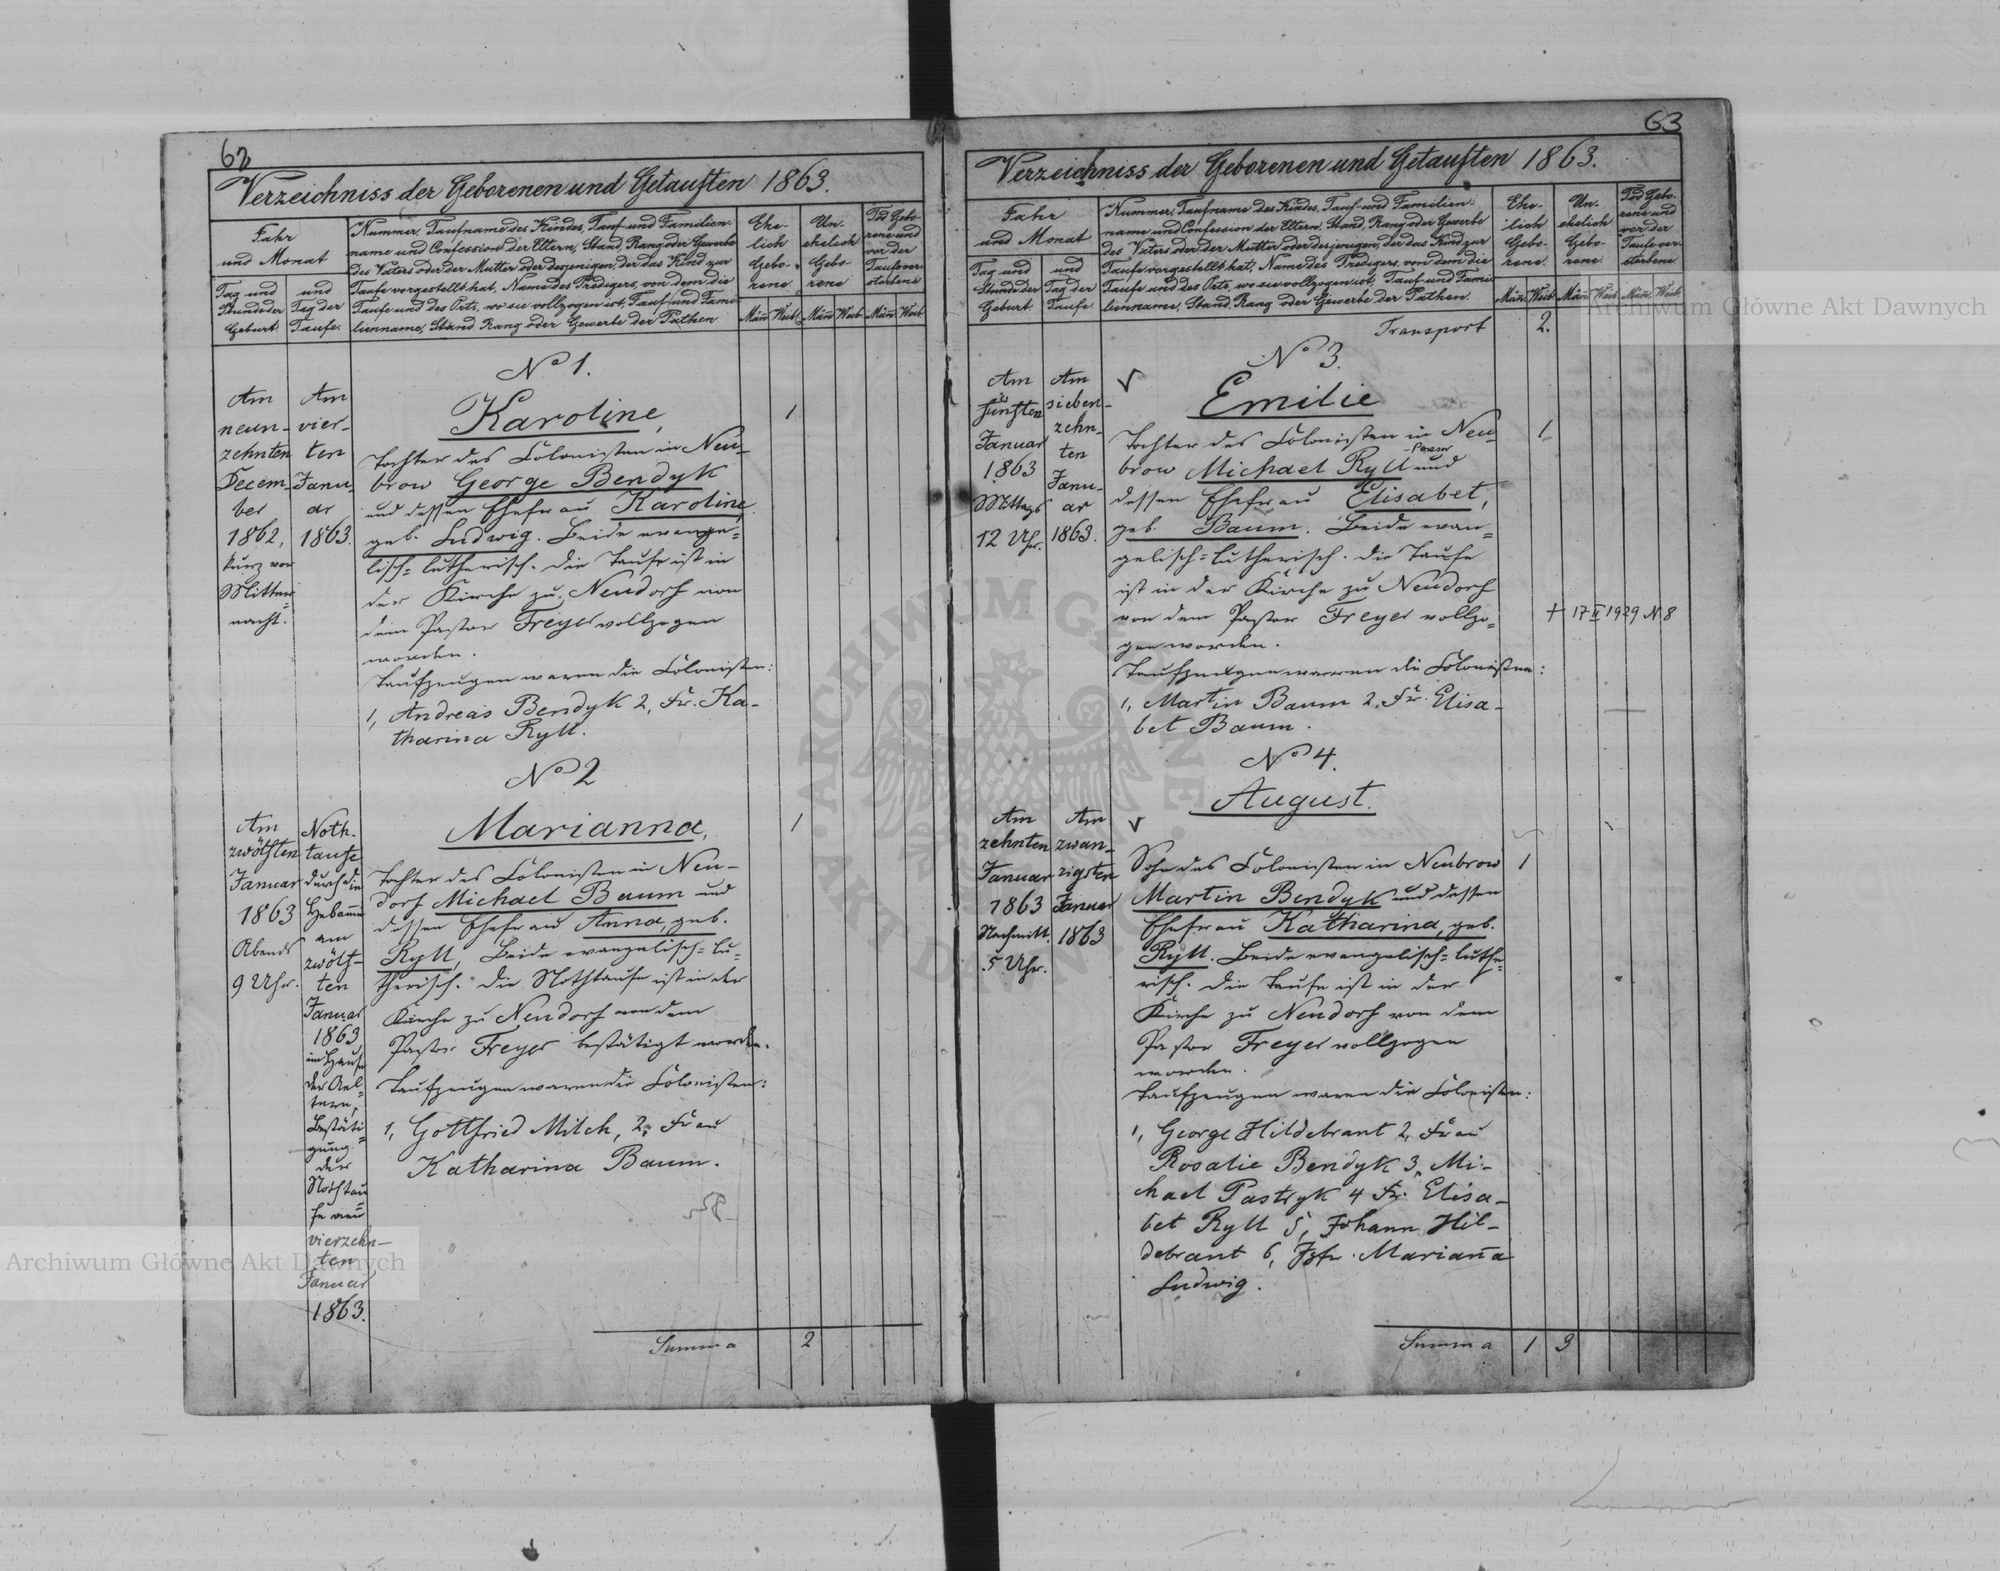 62
Verzeichniss der Geborenen und Getauften 1863.
Jahr
und Monat
Tag und
Stunde der
Geburt.
und
Tag der
Taufe.
Nummer, Taufname des Kindes, Tauf- und Familien-
name und Confession der Eltern, Stand, Rang oder Gewerbe
des Vaters oder der Mutter oder desjenigen, der das Kind zur
Taufe vorgestellt hat, Name des Predigers, von dem die
Taufe und des Orts, wo sie vollzogen ist, Tauf- und Fami-
lienname, Stand Rang oder Gewerbe der Pathen
Ehe-
lich
Gebo-
rene.
Un-
ehelich
Gebo-
rene
Tod Gebo-
rene und
vor der
Taufe ver-
storbene
Män Weib. Män Weib Män Weib
No 1.
Am
neun-
zehnten
Decem-
ber
1862,
kurz vor
Mitter=
nacht.
Am
vier-
ten
Janu-
ar
1863.
Karoline,
1
Tochter des Colonisten in Neu-
brow George Bendyk
und dessen Ehefrau Karoline,
geb. Ludwig. Beide evange=
lisch=lutherisch. Die Taufe ist in
der Kirche zu Neudorf von
dem Pastor Freyer vollzogen
worden.
Taufzeugen waren die Colonisten:
1, Andreas Bendyk 2, Fr. Ka-
tharina Ryll.
No 2
Am
zwölften
Januar
1863
Abends
9 Uhr.
Noth-
taufe
durch die
Hebamme
am
zwölf-
ten
Januar
1863
im Hause
der Ael=
tern,
Bestäti=
gung
der
Nothtau
fe am
vierzehn-
ten
Januar
1863.
Marianna,
1
Tochter des Colonisten in Neu-
dorf Michael Baum und
dessen Ehefrau Anna, geb.
Ryll, Beide evangelisch=lu-
therisch. Die Nothtaufe ist in der
Kirche zu Neudorf von dem
Pastor Freyer bestätigt worden.
Taufzeugen waren die Colonisten:
1, Gottfried Milch, 2, Frau
Katharina Baum.
Summa 2
63
Verzeichniss der Geborenen und Getauften 1863.
Jahr
und Monat
Tag und
Stunde der
Geburt
und
Tag der
Taufe
Nummer, Taufname des Kindes, Tauf- und Familien-
name und Confession der Eltern, Stand, Rang oder Gewerbe
des Vaters oder der Mutter oder desjenigen, der das Kind zur
Taufe vorgestellt hat, Name des Predigers, von dem die
Taufe und des Orts, wo sie vollzogen ist, Tauf- und Fami-
lienname, Stand, Rang oder Gewerbe der Pathen.
Ehe-
lich
Gebo-
rene.
Un-
ehelich
Gebo-
rene.
Tod Gebo-
rene und
vor der
Taufe ver-
storbene
Män Weib. Män Weib Män Weib
Transport 2.
No 3.
Am
fünften
Januar
1863
Mittags
12 Uhr.
Am
sieben-
zehn-
ten
Janu-
ar
1863.
Emilie
1
Tochter des Colonisten in Neu-
brow Michael Ryll und
dessen Ehefrau Elisabet,
geb. Baum. Beide evan=
gelisch=lutherisch. Die Taufe
ist in der Kirche zu Neudorf
von dem Pastor Freyer vollzo=
gen worden.
+ 17 II 1929 N 8
Taufzeugen waren die Colonisten:
1, Martin Baum 2, Fr. Elisa-
bet Baum.
No 4.
Am
zehnten
Januar
1863
Nachmitt.
5 Uhr.
Am
zwan-
zigsten
Januar
1863
August.
Sohn des Colonisten in Neubrow
1
Martin Bendyk und dessen
Ehefrau Katharina, geb.
Ryll. Beide evangelisch=luthe=
risch. Die Taufe ist in der
Kirche zu Neudorf von dem
Pastor Freyer vollzogen
worden.
Taufzeugen waren die Colonisten:
1, George Hildebrant 2, Frau
Rosalie Bendyk 3, Mi-
chael Pastryk 4 Fr. Elisa-
bet Ryll 5, Johann Hil-
debrant 6, Jgfr. Marianna
Ludwig.
Summa 1 3
Archiwum Główne Akt Dawnych
Archiwum Główne Akt Dawnych
ARCHIWUM GŁÓWNE AKT DAWNYCH